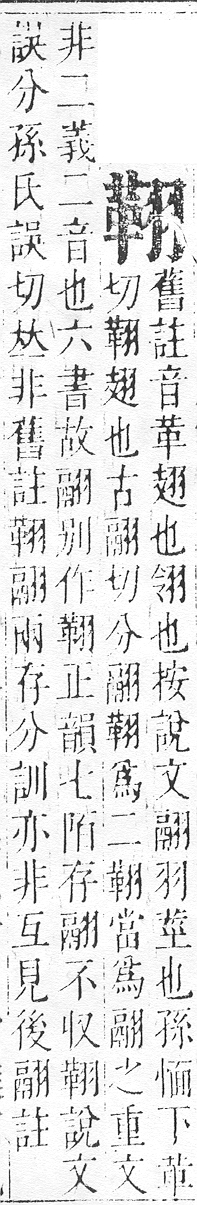 䎗
舊註音革翅也翎也按說文翮羽莖也孫愐下革
切䎗翅也古翮切分翮䎗爲二䎗當爲翮之重文
非二義二音也六書故翮別作䎗正韻七陌存翮不收䎗說文
誤分孫氏誤切𠀤非舊註䎗翮兩存分訓亦非互見後翮註